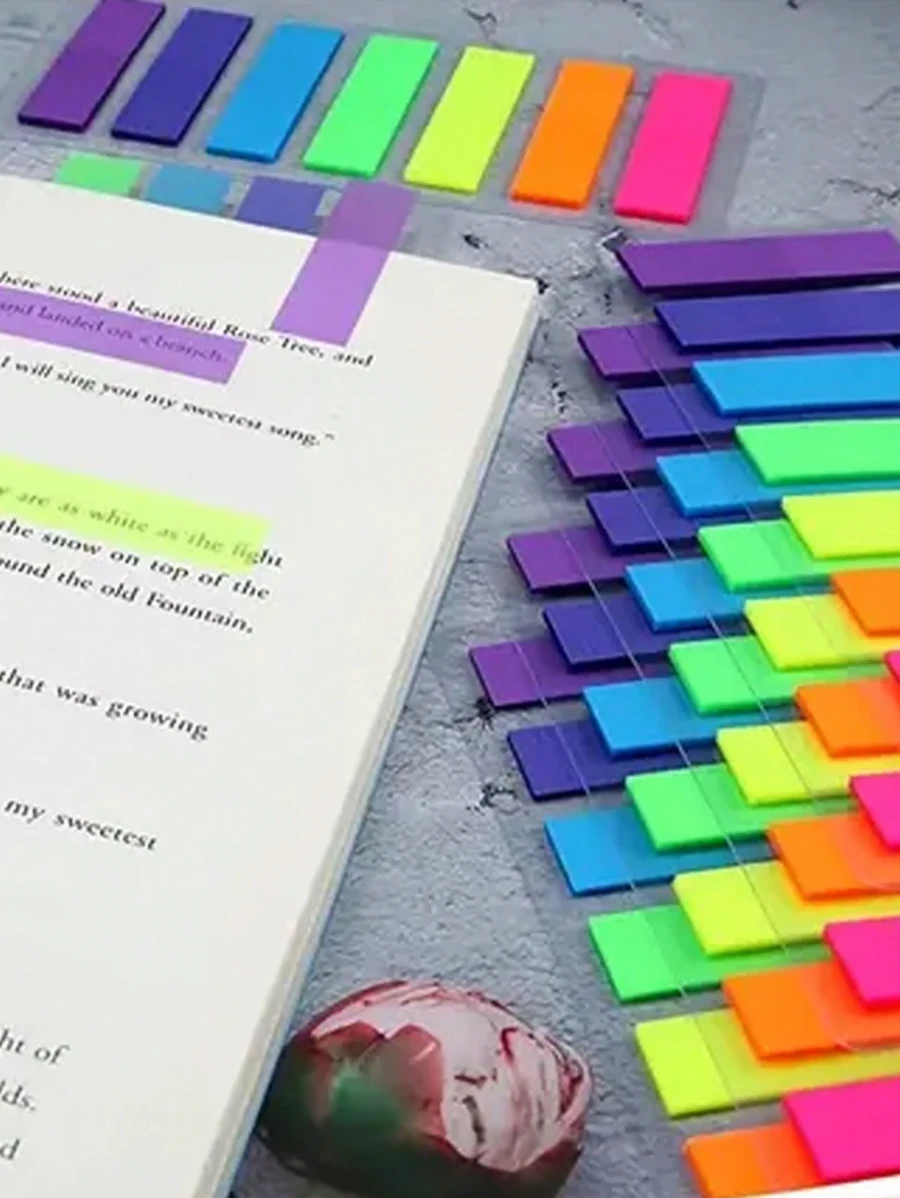 here stood a beautiful Rose Tree, and
and landed on a branch.
I will sing you my sweetest song."
are as white as the light
the snow on top of the
ound the old Fountain,
that was growing
my sweetest
ht of
lds.
d